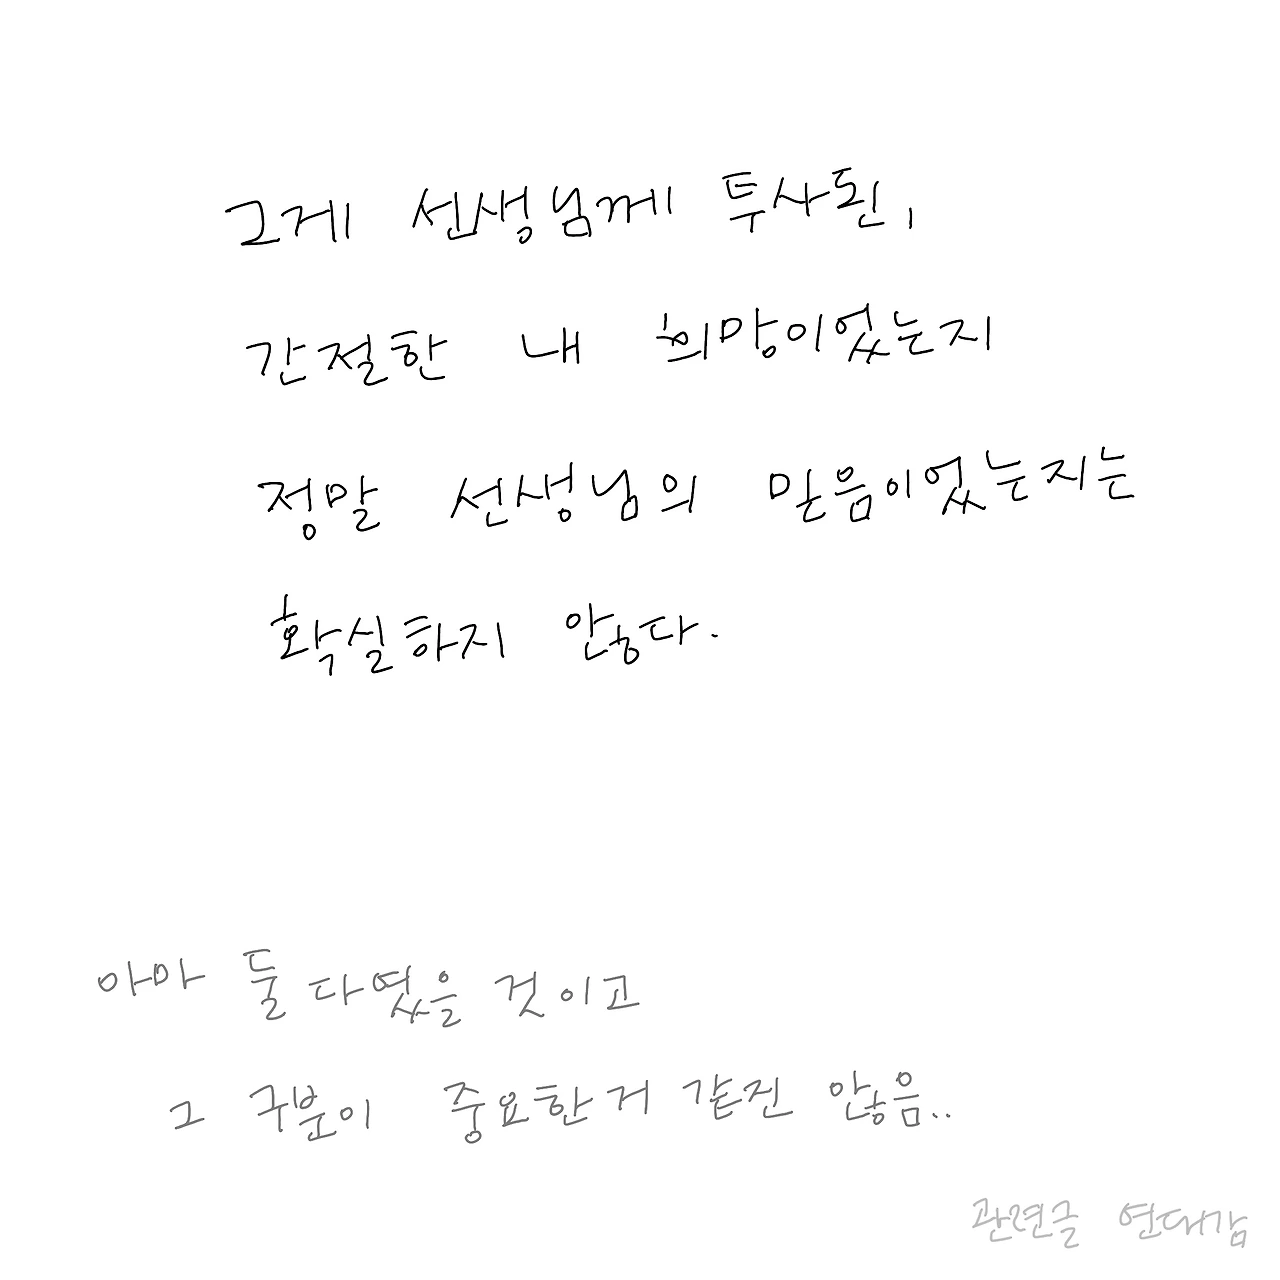 그게 선생님께 투사된,
간절한 내 희망이었는지
정말 선생님의 믿음이었는지는
확실하지 않다.
아마 둘 다였을 것이고
그 구분이 중요한거 같진 않음..
관련글 연대감